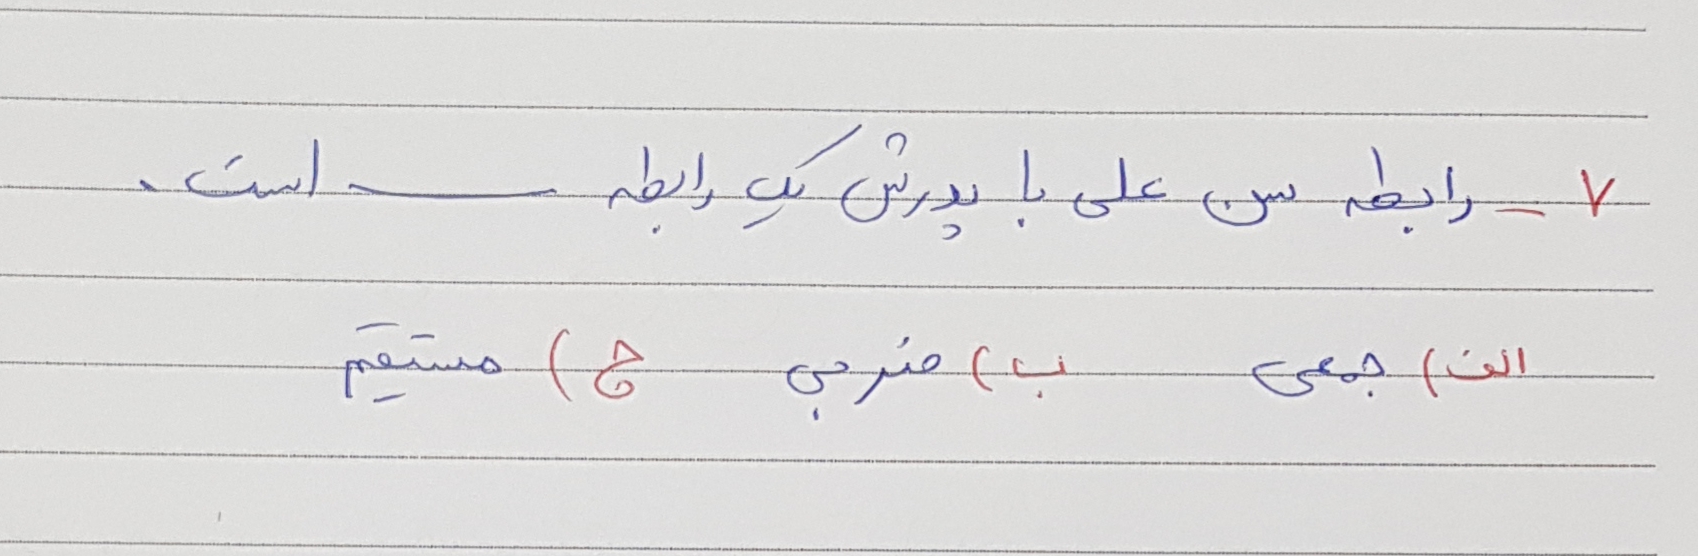 ۷ - رابطه سن علی با پدرش یک رابطه ــــــ است.
الف) جمعی ب) ضربی ج) مستقیم